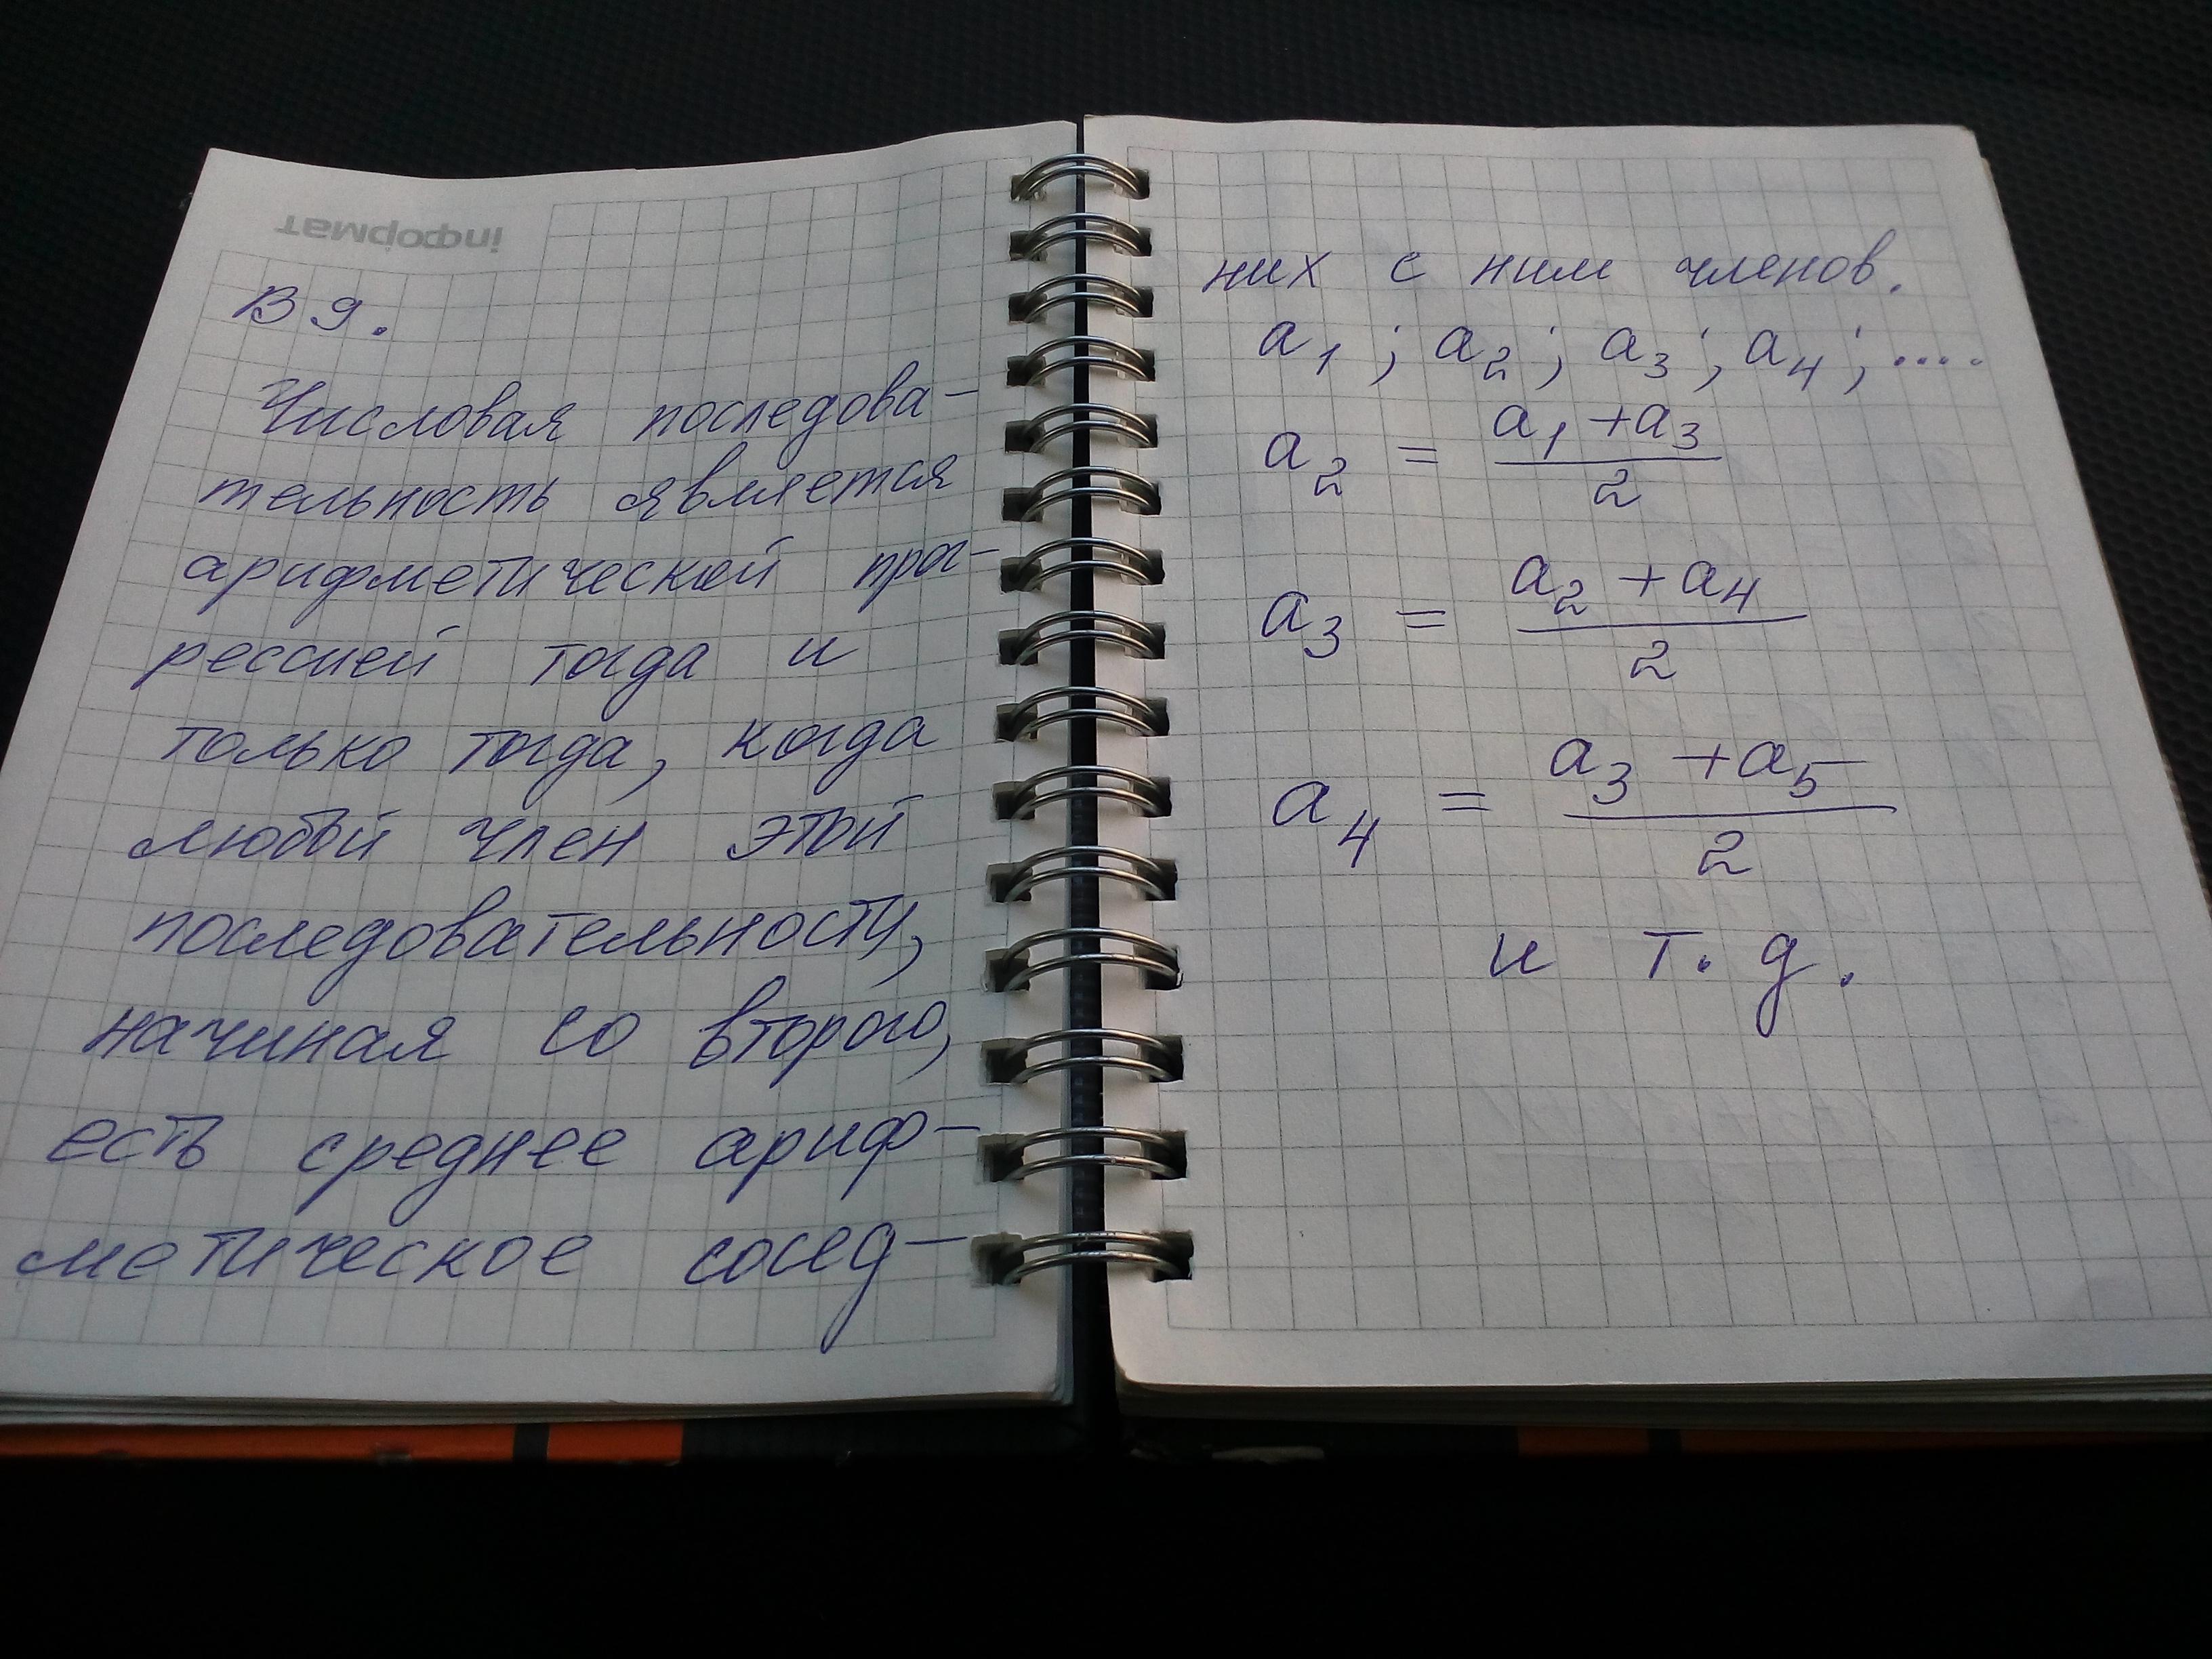 інформат
В 9.
Числовая последова-
тельность является
арифметической прог-
рессией тогда и
только тогда, когда
любой член этой
последовательности,
начиная со второго,
есть среднее ариф-
метическое сосед-
них с ним членов.
a₁ ; a₂ ; a₃ ; a₄ ; ....
a₂ = (a₁ + a₃) / 2
a₃ = (a₂ + a₄) / 2
a₄ = (a₃ + a₅) / 2
и т. д.